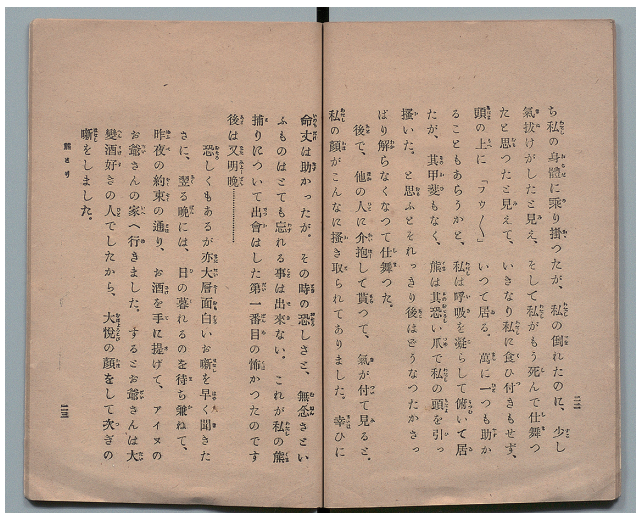 ち私の身體に乘り掛つたが、私の倒れたのに、少し
氣拔けがしたと見え、そして私がもう死んで仕舞つ
たと思つたと見えて、いきなり私に食ひ付きもせず、
頭の上に「フウ〱」いつて居る。萬に一つも助か
ることもあらうかと、私は呼吸を凝らして俯いて居
たが、其甲斐もなく、熊は其恐い爪で私の頭を引つ
搔いた、と思ふとそれつきり後はどうなつたかさつ
ぱり解らなくなつて仕舞つた。
後で、他の人に介抱して貰つて、氣が付て見ると、
私の顔がこんなに搔き取られてありました。幸ひに
二二
命丈は助かつたが。その時の恐しさと、無念さとい
ふものはとても忘れる事は出來ない、これが私の熊
捕りについて出會はした第一番目の怖かつたのです
後は又明晩…………
恐しくもあるが亦大層面白いお噺を早く聞きた
さに、翌る晩には、日の暮れるのを待ち兼ねて、
昨夜の約束の通り、お酒を手に提げて、アイヌの
お爺さんの家へ行きました。するとお爺さんは大
變酒好きの人でしたから、大悅の顔をして次ぎの
噺をしました。
二三